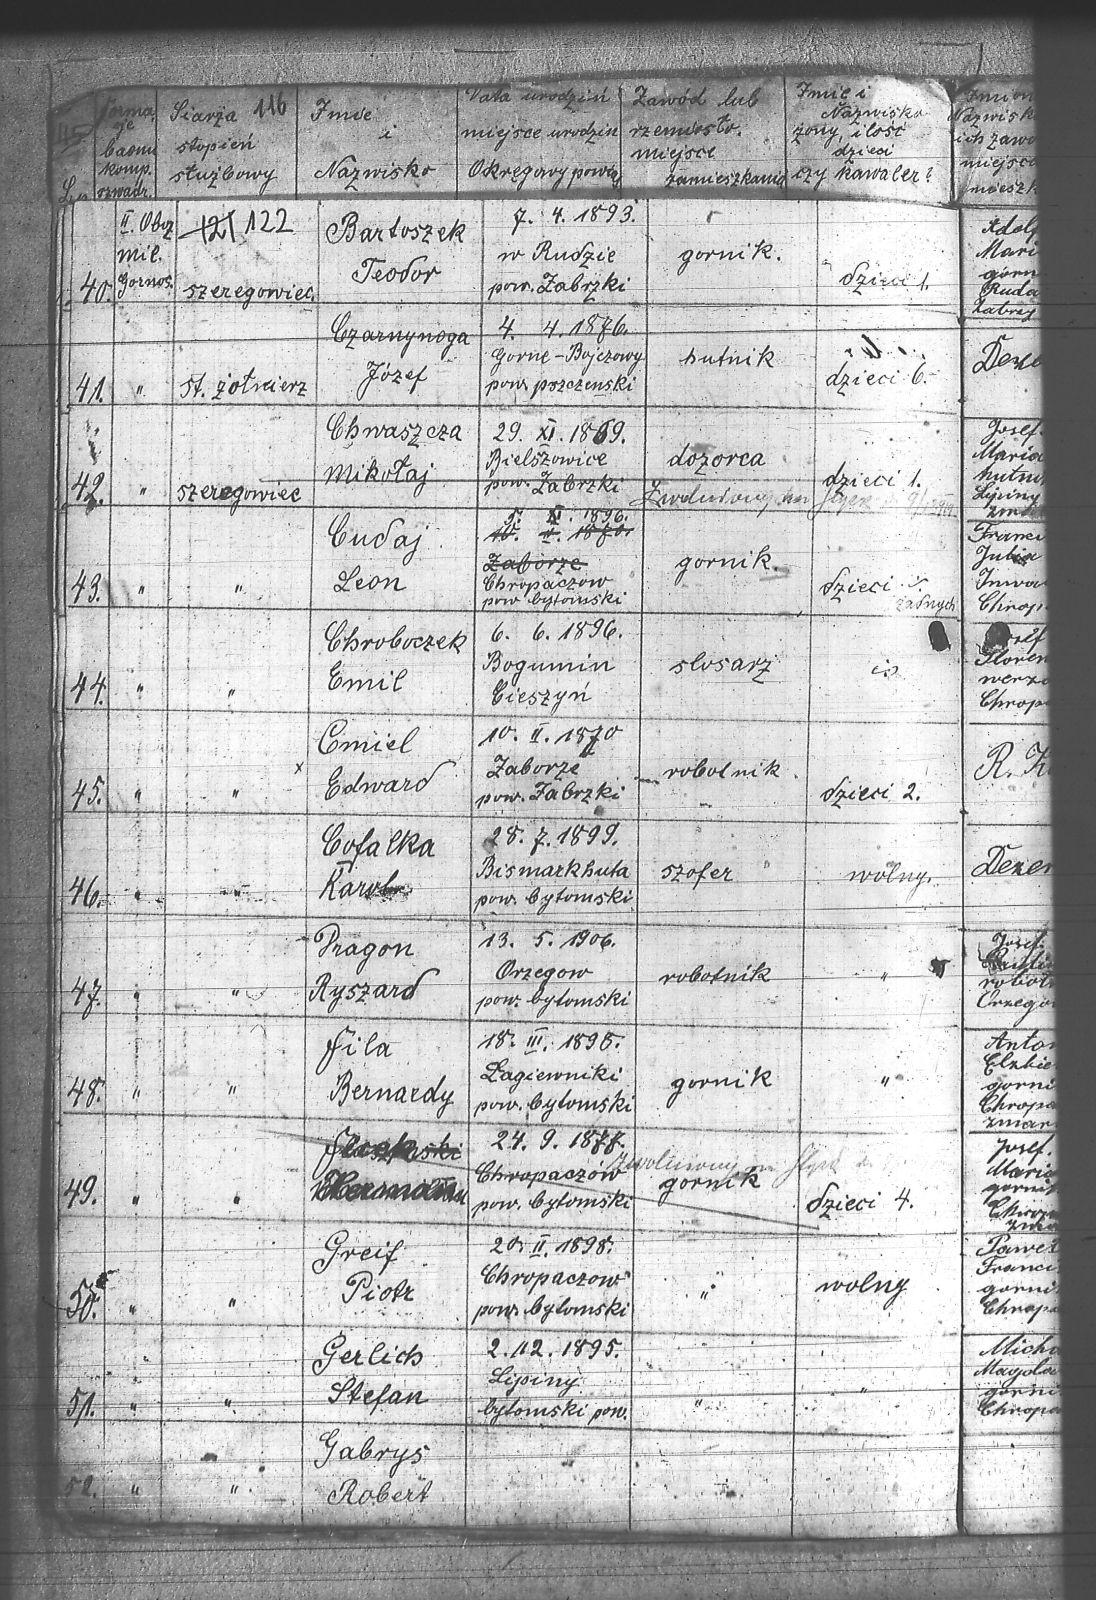 Szarża 116
stopień
służbowy
Imie
i
Nazwisko
Data urodzin
miejsce urodzin
Okręgowy powiat
Zawód lub
rzemiosło.
miejsce
zamieszkania
Imię i
Nazwisko
żony, ilość
dzieci
czy kawaler?
Lp.
baonu
komp.
szwadr.
40.
II. Oboz
mie.
Gornoś.
121 122
szeregowiec.
Bartoszek
Teodor
7. 4. 1893.
w Rudzie
pow. Zabrzki
gornik.
dzieci 1.
Adolf
Mari
gorn
Ruda
Zabrz
41.
"
st. żołnierz
Czarnynoga
Józef
4. 4. 1876.
Gorne-Bojczowy
pow. pszczenski
hutnik
dzieci 6.
Deze
42.
"
szeregowiec
Chwaszcza
Mikołaj
29. XI. 1869.
Bielszowice
pow. Zabrzki
dozorca
dzieci 1.
Josef.
Maria
hutni
Lipiny
43.
"
"
Cudaj
Leon
5. XI. 1896.
10. II. 1870.
Zaborze
Chropaczow
pow bytomski
gornik.
dzieci
żadnych
Franci
Julia
Inwa
Chrop
44.
"
"
Chroboczek
Emil
6. 6. 1896.
Bogumin
Cieszyń
slosarz
Floren
Chrop
45.
"
"
x
Cmiel
Edward
10. II. 1870
Zaborze
pow. Zabrzki
robotnik
dzieci 2.
R. K
46.
"
"
Cofalka
Karol
28. 7. 1899.
Bismarkhuta
pow. bytomski
szofer
wolny.
Dezer
47.
"
"
Dragon
Ryszard
13. 5. 1906.
Orzegow
pow. bytomski
robotnik
"
Josef.
robotn
Orzego
48.
"
"
Fila
Bernardy
18. III. 1898.
Lagiewniki
pow. bytomski
gornik
"
Anton
Elzbie
gorni
Chropa
zmar
49.
"
"
24. 9. 1877.
Chropaczow
pow. bytomski
gornik
dzieci 4.
Josef.
Maria
gornik
50.
"
"
Greif
Piotr
20. II. 1898.
Chropaczow
pow. bytomski
"
wolny
Paweł
Franci
gorni
Chropa
51.
"
"
Gerlich
Stefan
2. 12. 1895.
Lipiny
bytomski pow.
"
"
Micha
Magdale
gorni
Chropa
52.
"
"
Gabrys
Robert